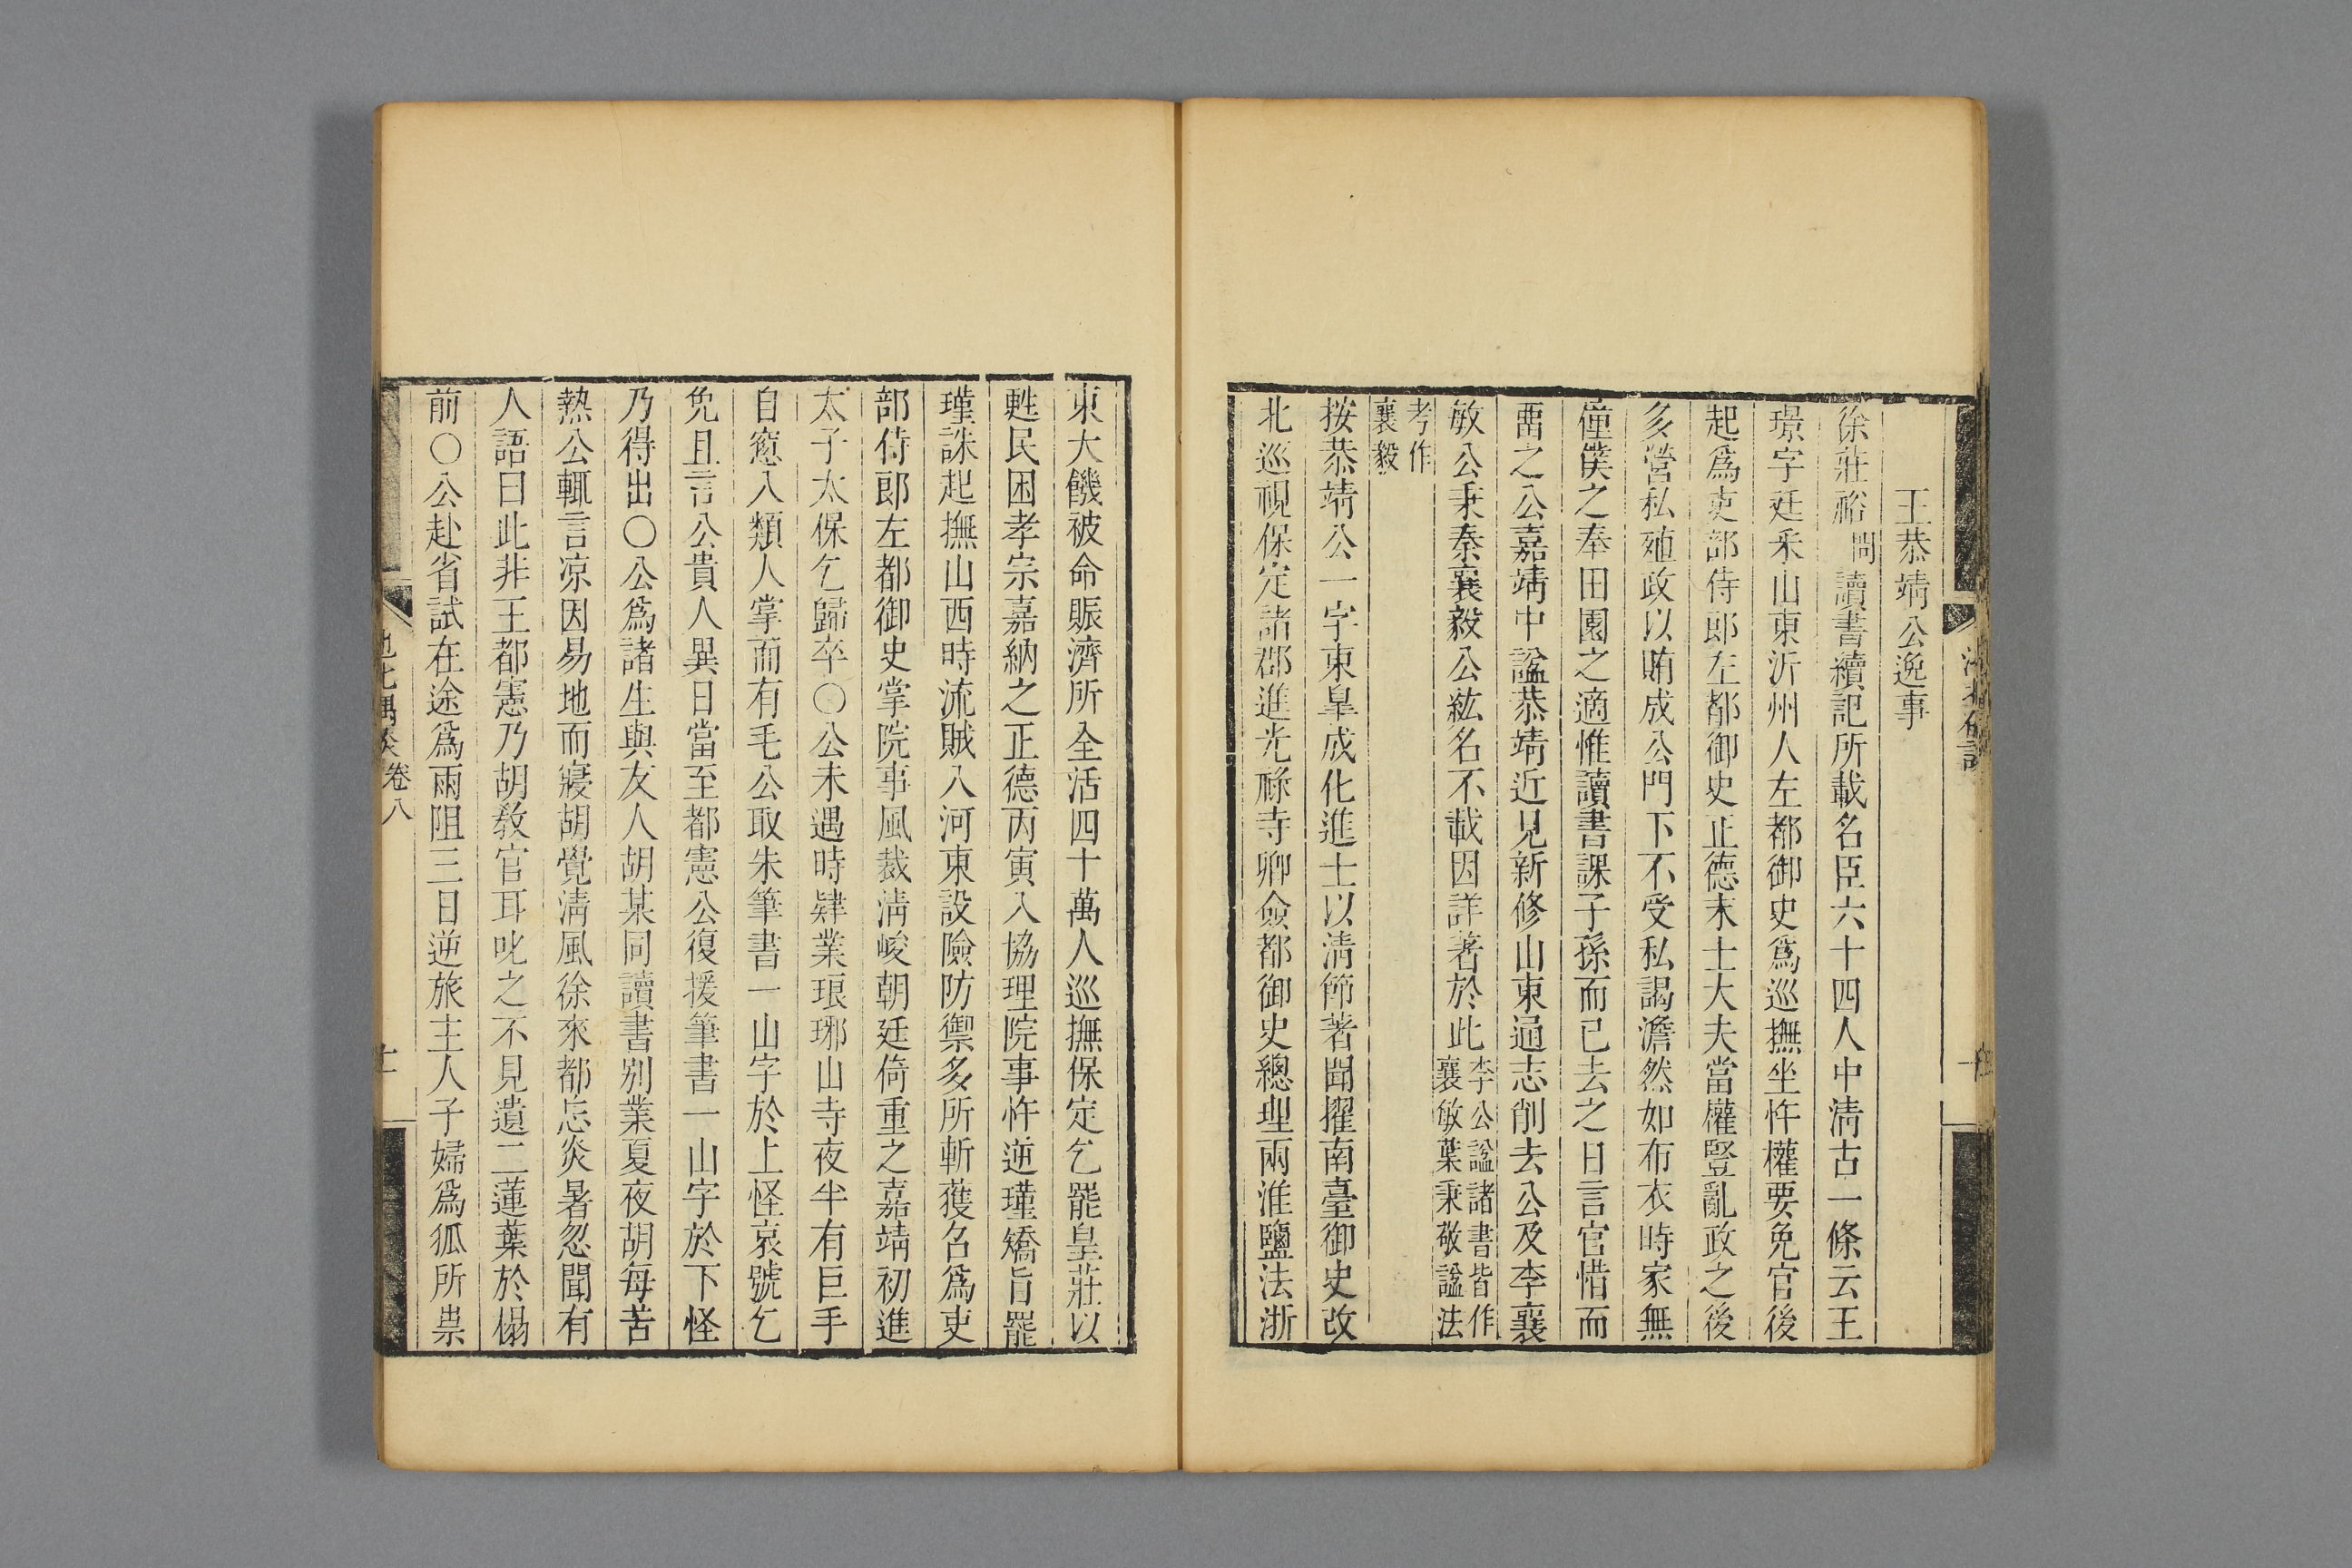 王恭靖公逸事
徐莊裕問讀書續記所載名臣六十四人中清古一條云王
璟字廷釆山東沂州人左都御史爲巡撫坐忤權要免官後
起爲吏部侍郎左都御史正德末士大夫當權豎亂政之後
多營私殖政以賄成公門下不受私謁澹然如布衣時家無
僮僕之奉田園之適惟讀書課子孫而已去之日言官惜而
畱之公嘉靖中諡恭靖近見新修山東通志削去公及李襄
敏公秉秦襄毅公紘名不載因詳著於此李公諡諸書皆作襄敏葉秉敬諡法
考作襄毅
按恭靖公一字東皐成化進士以清節著聞擢南臺御史改
北巡視保定諸郡進光祿寺卿僉都御史總理兩淮鹽法浙
東大饑被命賑濟所全活四十萬人巡撫保定乞罷皇莊以
甦民困孝宗嘉納之正德丙寅入協理院事忤逆瑾矯旨罷
瑾誅起撫山西時流賊入河東設險防禦多所斬獲召爲吏
部侍郎左都御史掌院事風裁清峻朝廷倚重之嘉靖初進
太子太保乞歸卒〇公未遇時肄業琅琊山寺夜半有巨手
自窻入類人掌而有毛公取朱筆書一山字於上怪哀號乞
免且言公貴人異日當至都憲公復援筆書一山字於下怪
乃得出〇公爲諸生與友人胡某同讀書别業夏夜胡每苦
熱公輒言凉因易地而寢胡覺清風徐來都忘炎暑忽聞有
人語曰此非王都憲乃胡教官耳叱之不見遺二蓮葉於榻
前〇公赴省試在途爲雨阻三日逆旅主人子婦爲狐所祟
卷八